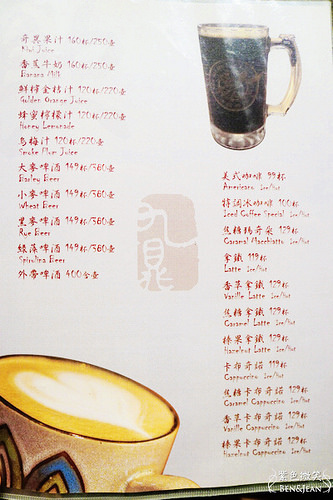 奇異果汁 160杯/250壺
Kiwi Juice
香蕉牛奶 160杯/250壺
Banana Milk
鮮檸金桔汁 120杯/220壺
Golden Orange Juice
蜂蜜檸檬汁 120杯/220壺
Honey Lemonade
烏梅汁 120杯/220壺
Smoke Plum Juice
大麥啤酒 149杯/360壺
Barley Beer
小麥啤酒 149杯/360壺
Wheat Beer
黑麥啤酒 149杯/360壺
Rye Beer
綠藻啤酒 149杯/360壺
Spirulina Beer
外帶啤酒 400含壺
美式咖啡 99杯
Americano Ice/Hot
特調冰咖啡 100杯
Iced Coffee Special Ice/Hot
焦糖瑪奇朵 129杯
Caramel Macchiatto Ice/Hot
拿鐵 119杯
Latte Ice/Hot
香草拿鐵 129杯
Vanille Latte Ice/Hot
焦糖拿鐵 129杯
Caramel Latte Ice/Hot
榛果拿鐵 129杯
Hazelnut Latte Ice/Hot
卡布奇諾 119杯
Cappuccino Ice/Hot
焦糖卡布奇諾 129杯
Caramel Cappuccino Ice/Hot
香草卡布奇諾 129杯
Vanille Cappuccino Ice/Hot
榛果卡布奇諾 129杯
Hazelnut Cappuccino Ice/Hot
紫色微笑
BEN&JEAN